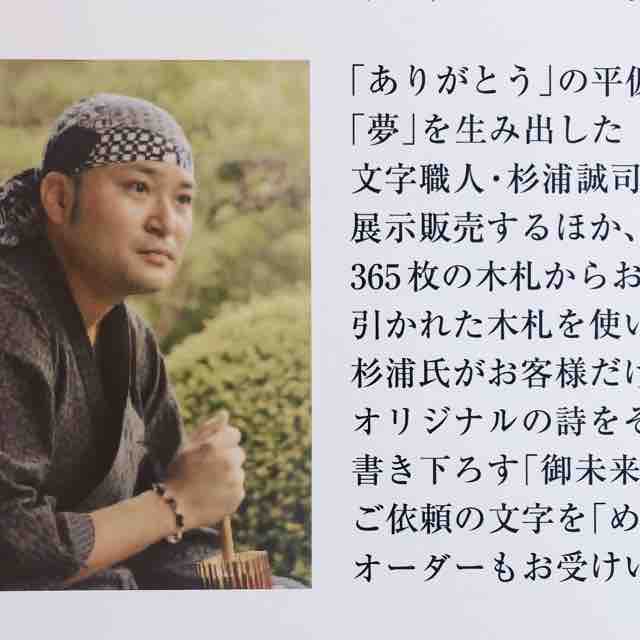 「ありがとう」の平仮
「夢」を生み出した
文字職人・杉浦誠司
展示販売するほか、
365枚の木札からお
引かれた木札を使い
杉浦氏がお客様だけ
オリジナルの詩をそ
書き下ろす「御未来
ご依頼の文字を「め
オーダーもお受けい